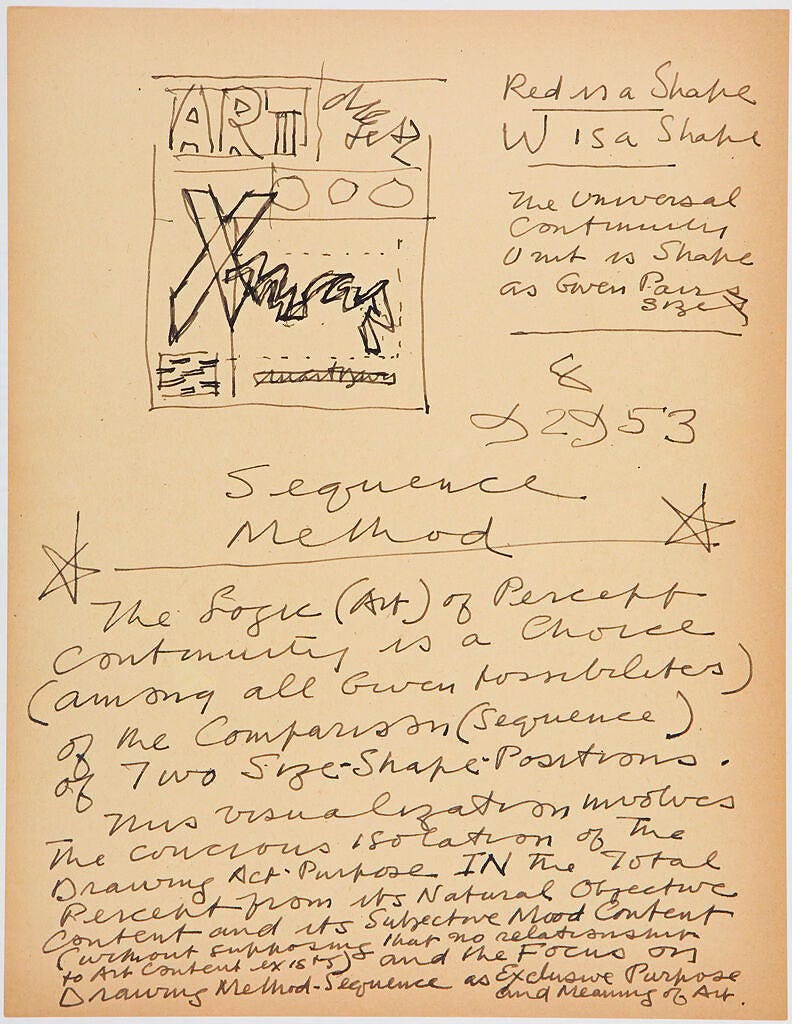 ART digest
Xmas
Red is a Shape
W is a Shape
The Universal
Continuity
Unit is Shape
as Given Pairs
Size
&
D2D53
Sequence
Method
The Logic (Art) of Percept
Continuity is a Choice
(among all Given possibilites)
of the Comparison (Sequence)
of Two Size-Shape-Positions.
This visualization involves
The concious isolation of The
Drawing Act-Purpose IN the Total
Percept from its Natural Objective
Content and its Subjective Mood Content
(without supposing that no relationship
to Art Content exists) and the Focus on
Drawing Method-Sequence as Exclusive Purpose
and Meaning of Art.